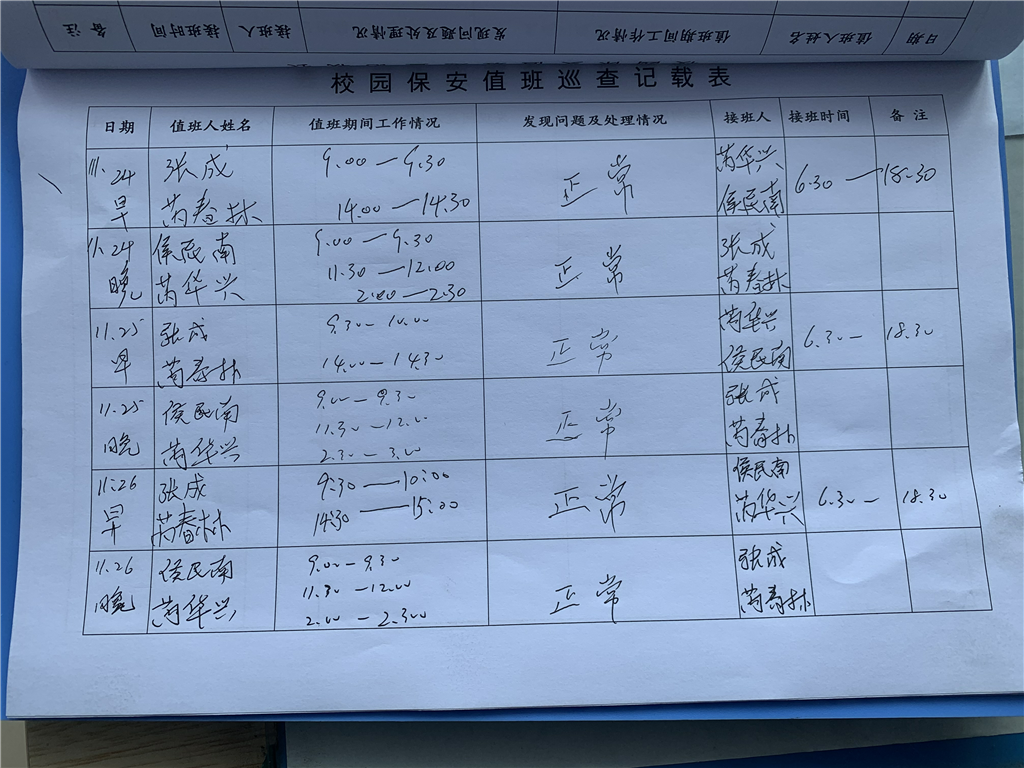 备注 接班时间 接班人 发现问题及处理情况 值班期间工作情况 值班人姓名 日期
校园保安值班巡查记载表
日期 值班人姓名 值班期间工作情况 发现问题及处理情况 接班人 接班时间 备注
11.24 张成 9:00—9:30 正常 芮华兴 6.30—18:30
早 芮春林 14.00—14:30 侯民南
11.24 侯民南 9.00—9.30 正常 张成
晚 芮华兴 11.30—12:00 芮春林
2:00—2:30
11.25 张成 9.30—10.00 正常 芮华兴 6.30— 18.30
早 芮春林 14.00—14:30 侯民南
11.25 侯民南 9.00—9.30 正常 张成
晚 芮华兴 11.30—12.00 芮春林
2.30—3.00
11.26 张成 9:30—10:00 正常 侯民南 6.30— 18.30
早 芮春林 14:30—15:00 芮华兴
11.26 侯民南 9.00—9.30 正常 张成
晚 芮华兴 11.30—12.00 芮春林
2.00—2.300